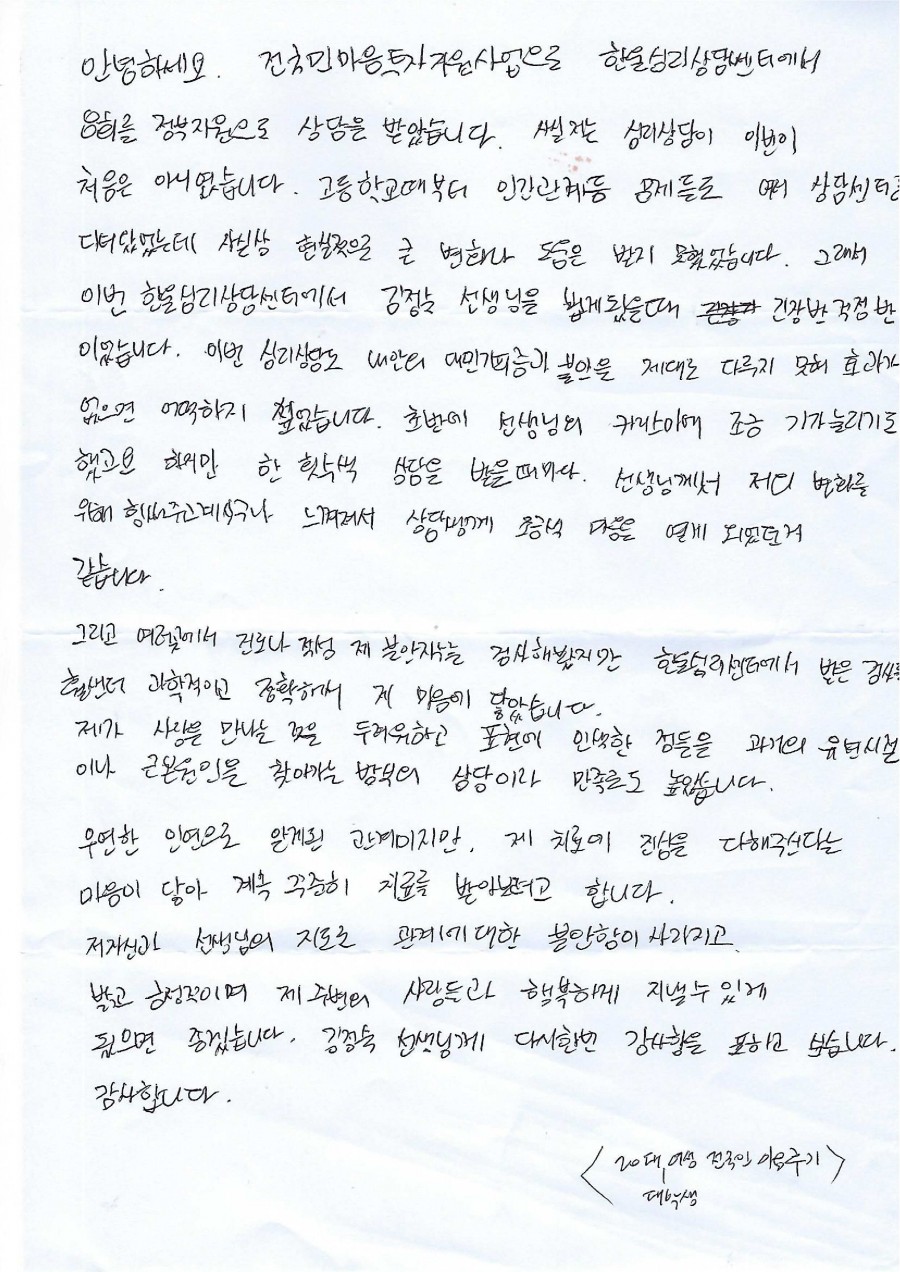 안녕하세요. 전국민마음투자지원사업으로 한울심리상담센터에서
8회를 정부지원으로 상담을 받았습니다. 사실저는 심리상담이 이번이
처음은 아니었습니다. 고등학교때부터 인간관계등 문제들로 여러 상담센터를
다녀왔었는데 사실상 현실적으로 큰 변화나 도움은 받지 못했었습니다. 그래서
이번 한울심리상담센터에서 김정숙 선생님을 뵙게됬을때 긴장반 걱정반
이었습니다. 이번 심리상담도 내안의 대인기피증과 불안을 제대로 다루지 못해 효과가
없으면 어떡하지 싶었습니다. 초반에 선생님의 카리스마에 조금 기가눌리기도
했고요 하지만 한 회차씩 상담을 받을때마다. 선생님께서 저의 변화를
위해 힘써주고계시구나 느껴져서 상담쌤께 조금씩 마음을 열게 되었던거
같습니다.
그리고 여러곳에서 진로나 적성 제 불안지수는 검사해봤지만 한울심리센터에서 받은 검사는
훨씬더 과학적이고 정확해서 제 마음에 닿았습니다.
제가 사람을 만나는 것을 두려워하고 표현에 인색한 점들을 과거의 유년시절
이나 근본원인을 찾아가는 방식의 상담이라 만족도도 높았습니다.
우연한 인연으로 알게된 관계이지만, 제 치료에 진심을 다해주신다는
마음이 닿아 계속 꾸준히 치료를 받아보려고 합니다.
저자신과 선생님의 지도로 관계에대한 불안함이 사라지고
밝고 긍정적이며 제 주변의 사람들과 행복하게 지낼수 있게
됬으면 좋겠습니다. 김정숙 선생님께 다시한번 감사함을 표하고 싶습니다.
감사합니다.
<20대, 여성 전국민 이용후기>
대학생